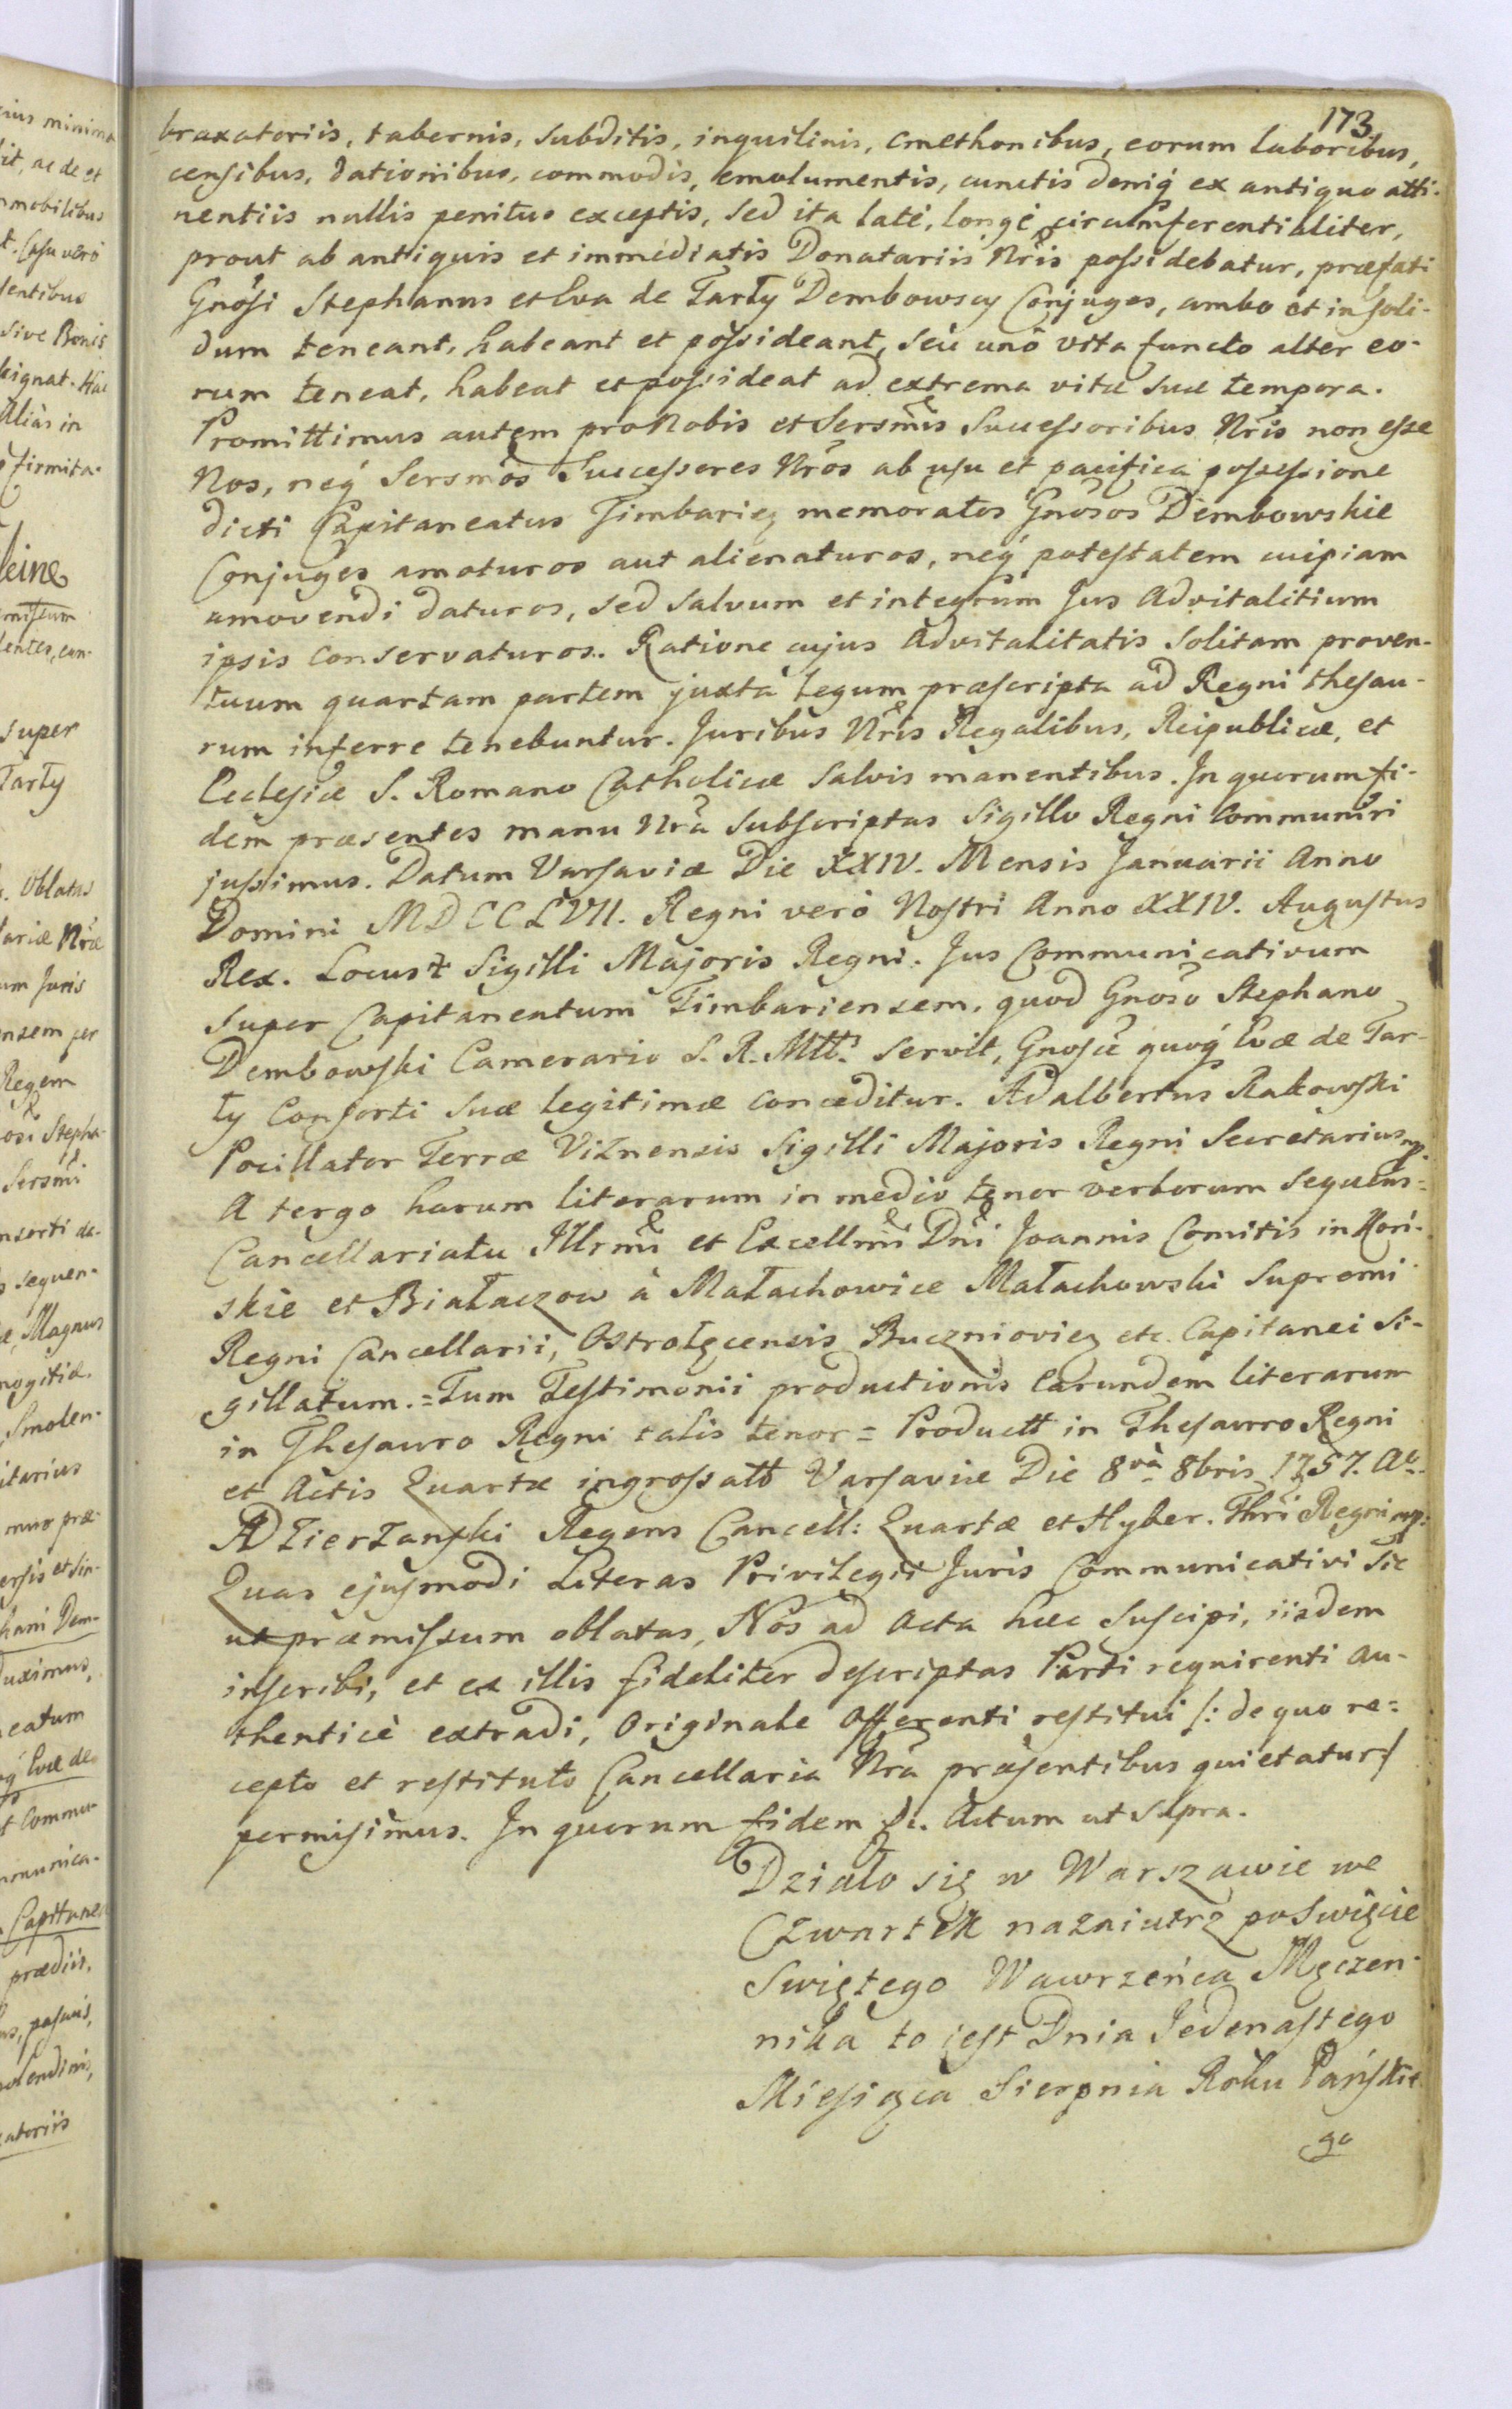 173
braxatoriis, tabernis, subditis, inquilinis, cmethonibus, eorum laboribus,
censibus, dationibus, commodis, emolumentis, cunctis deniq́ ex antiquo atti-
nentiis nullis penitus exceptis, sed ita latè, longè circumferentialiter,
prout ab antiquis et immediatis Donatariis Nris possidebatur, præfati
Gnosi Stephanus et Eva de Tarły Dembowscy Conjuges, ambo et in soli-
dum teneant, habeant et possideant, seu unô vita functo alter eo-
rum teneat, habeat et possideat ad extrema vitæ suæ tempora.
Promittimus autem pro Nobis et Sersmis Successoribus Nris non esse
Nos, neq́ Sersmos Successores Nros ab usu et pacifica possessione
dicti Capitaneatus Timbarieꝫ memoratos Gnosos Dembowskie
Conjuges amoturos aut alienaturos, neq́ potestatem cuipiam
amovendi daturos, sed salvum et integrum Jus Advitalitium
ipsis conservaturos. Ratione cujus Advitalitatis solitam proven-
tuum quartam partem juxta legum præscripta ad Regni thesau-
rum inferre tenebuntur. Juribus Nris Regalibus, Reipublicæ, et
Ecclesiæ S. Romano Catholicæ salvis manentibus. In quorum fi-
dem præsentes manu Nra subscriptas Sigillo Regni Communiri
jussimus. Datum Varsaviæ Die XXIV. Mensis Januarii Anno
Domini MDCCLVII. Regni verò Nostri Anno XXIV. Augustus
Rex. Locus ŧ Sigilli Majoris Regni. Jus Communicativum
super Capitaneatum Timbariensem, quod Gnoso Stephano
Dembowski Camerario S. R. Mtt. servit, Gnosæ quoq́ Evæ de Tar-
ły Consorti suæ legitimæ conceditur. Adalbertus Rakowski
Pocillator Terræ Viznensis Sigilli Majoris Regni Secretarius mp.
A tergo harum literarum in medio tenor verborum sequens=
Cancellariatu Illrmi et Excellmi Dni Joannis Comitis in Koń-
skie et Białaczow à Małachowice Małachowski Supremi
Regni Cancellarii, Ostrołęcensis Buczniovieꝫ etc. Capitanei Si-
gillatum.=Tum Testimonii productionis earundem literarum
in Thesauro Regni talis tenor= Productt in Thesaurro Regni
et Actis Quartæ ingrossatt Varsaviæ Die 8va 8bris 1757. Ao.
ADzierżanski Regens Cancell: Quartæ et Hyber. Thri Regni mp:
Quas ejusmodi Literas Privilegii Juris Communicativi Sic
ut præmissum oblatas, Nos ad Acta hæc suscipi, iisdem
inscribi, et ex illis fideliter descriptas Parti requirenti au-
thenticè extradi, Originale Offerenti restitui /: de quo re=
cepto et restituto Cancellaria Nra præsentibus quietatur:/
permisimus. In quorum fidem &c. Actum ut supra.
Działo się w Warszawie we
Czwartek nazaiutrz po Swięcie
Swiętego Wawrzeńca Męczen-
nika to iest Dnia Jedenastego
Miesiąca Sierpnia Roku Pańskie
go